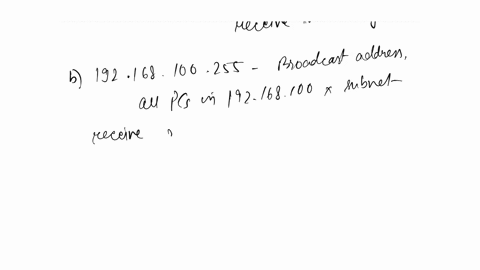 receive
b) 192.168.100.255 - Broadcast address,
all PCs in 192.168.100 x subnet
receive